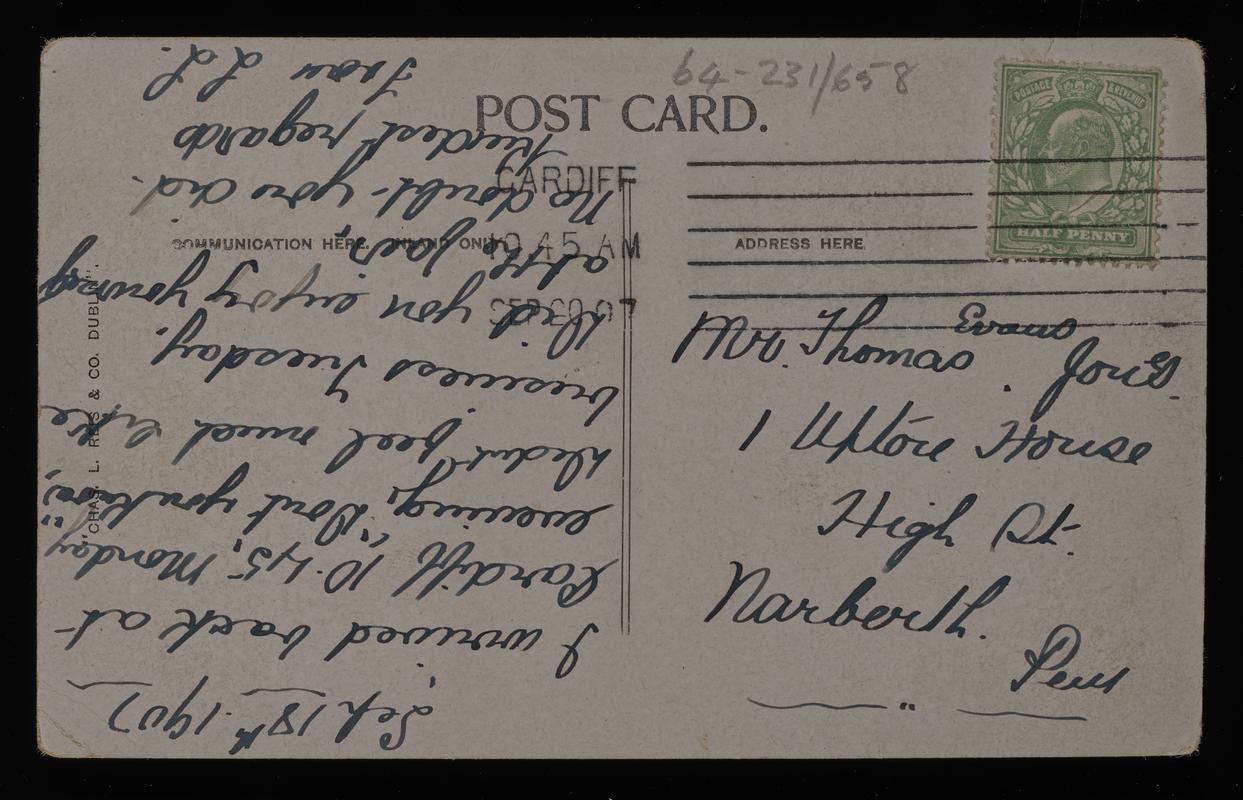 64-231/658
POST CARD.
CARDIFF
10.45 AM
SEP 20 07
POSTAGE & REVENUE
HALF PENNY
COMMUNICATION HERE. INLAND ONLY.
ADDRESS HERE
"CHAS. L. REIS & CO. DUBLIN".
Mr. Thomas Evans Jones.
1 Upton House
High St.
Narberth.
Pem
Sep 18th. 1907
I arrived back at
Cardiff 10.45, Monday
evening, "Dont you know,"
didnt feel much like
business Tuesday.
Did you enjoy yourself
at the
No doubt you did.
Kindest regards
From L L.